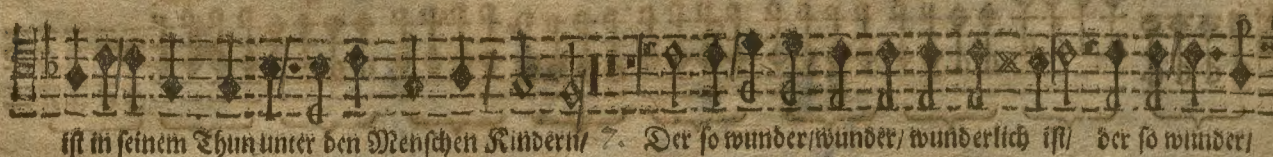 ist in seinem Thun unter den Menschen Kindern/ 7. Der so wunder/wunder/ wunderlich ist/ der so wunder/